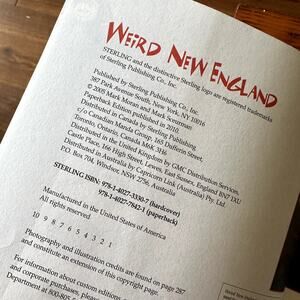 WEIRD NEW ENGLAND
STERLING and the distinctive Sterling logo are registered trademarks
of Sterling Publishing Co., Inc.
Published by Sterling Publishing Co., Inc.
387 Park Avenue South, New York, NY 10016
© 2005 Mark Moran and Mark Sceurman
Paperback Edition published in 2010.
Distributed in Canada by Sterling Publishing
c/o Canadian Manda Group, 165 Dufferin Street,
Toronto, Ontario, Canada M6K 3H6
Distributed in the United Kingdom by GMC Distribution Services,
Castle Place, 166 High Street, Lewes, East Sussex, England BN7 1XU
Distributed in Australia by Capricorn Link (Australia) Pty. Ltd.
P.O. Box 704, Windsor, NSW 2756, Australia
STERLING ISBN: 978-1-4027-3330-7 (hardcover)
978-1-4027-7842-1 (paperback)
Manufactured in the United States of America
All rights reserved
10 9 8 7 6 5 4 3 2 1
Photography and illustration credits are found on page 287
and constitute an extension of this copyright page.
For information about custom editions
and corporate purchases, please
Department at 800-805-